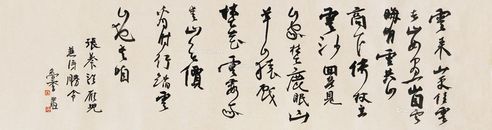 雲来山更佳雲
去山如画山因雲
晦明雲共山
高下倚杖立
雲沙回首見
山家埜鹿眠山
草山猿戲
埜花雲霞我
愛山無價
看時行踏雲
山也愛咱
張養浩雁兒
得勝令